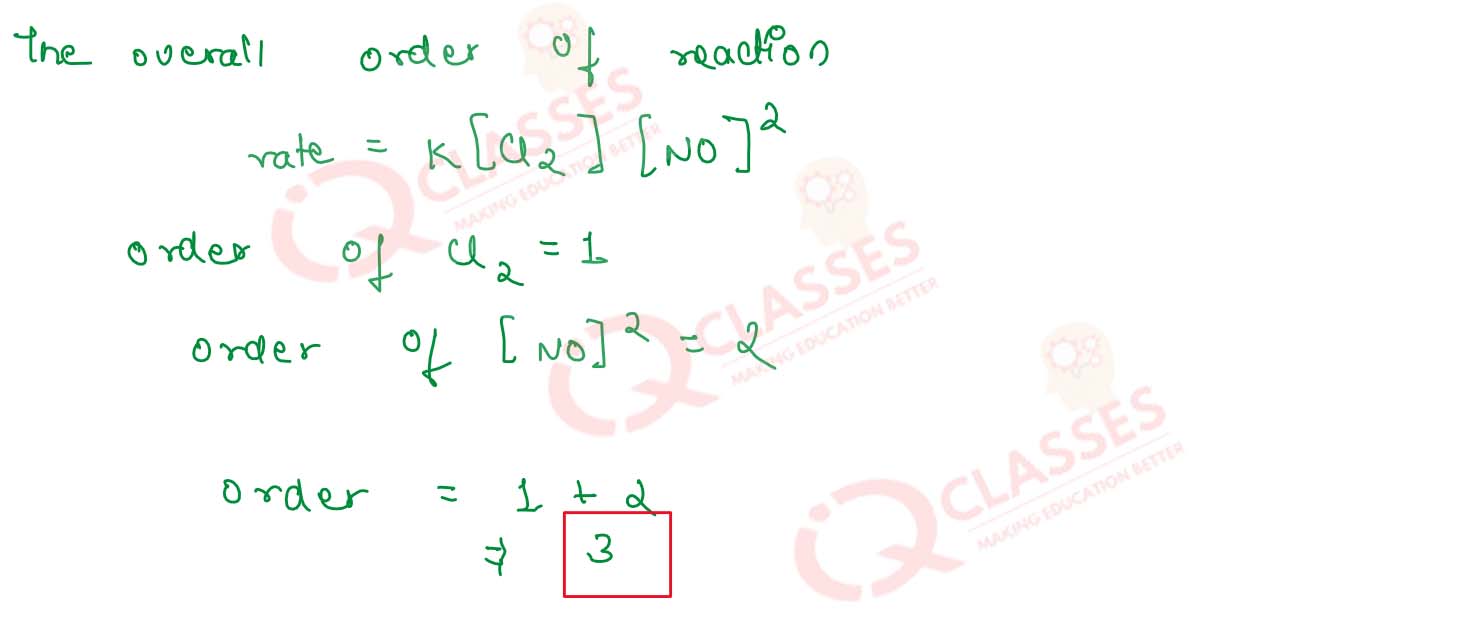 The overall order of reaction
rate = K[Cl₂] [NO]²
order of Cl₂ = 1
order of [NO]² = 2
order = 1 + 2
⇒ 3
IQ CLASSES
MAKING EDUCATION BETTER
IQ CLASSES
MAKING EDUCATION BETTER
IQ CLASSES
MAKING EDUCATION BETTER